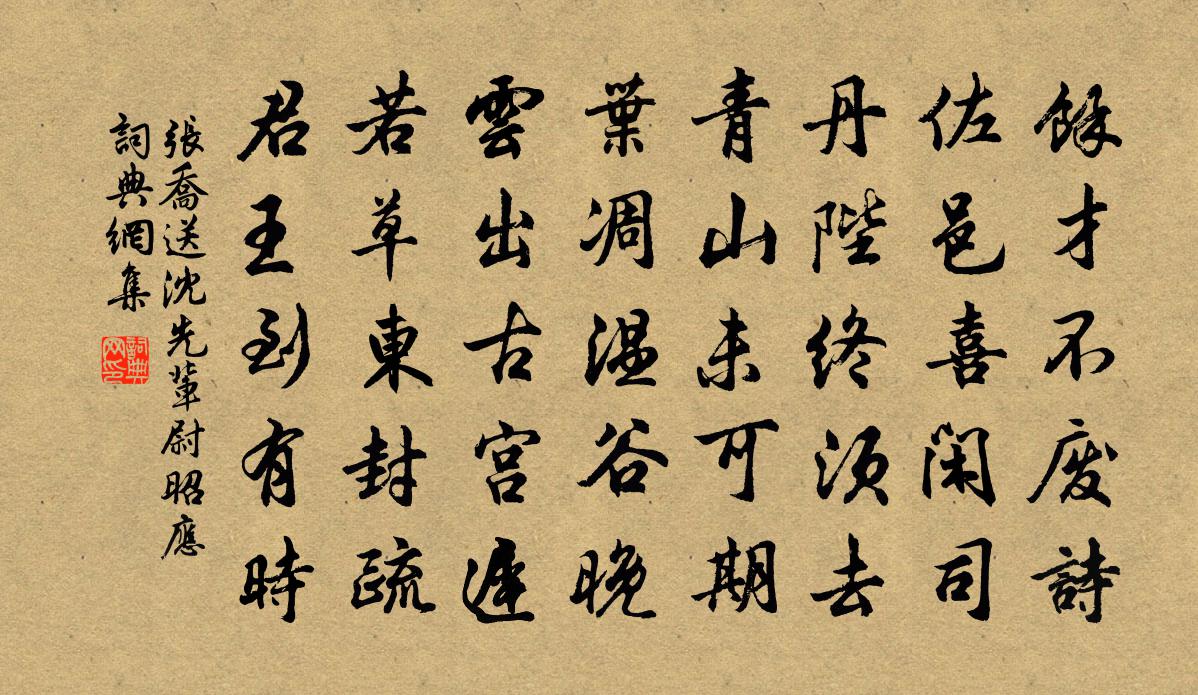 餘才不廢詩
佐邑喜閑司
丹陛終須去
青山未可期
葉凋溫谷晚
雲出古宮遲
若草東封疏
君王到有時
張喬送沈先輩尉昭應
詞典網集
詞典网印